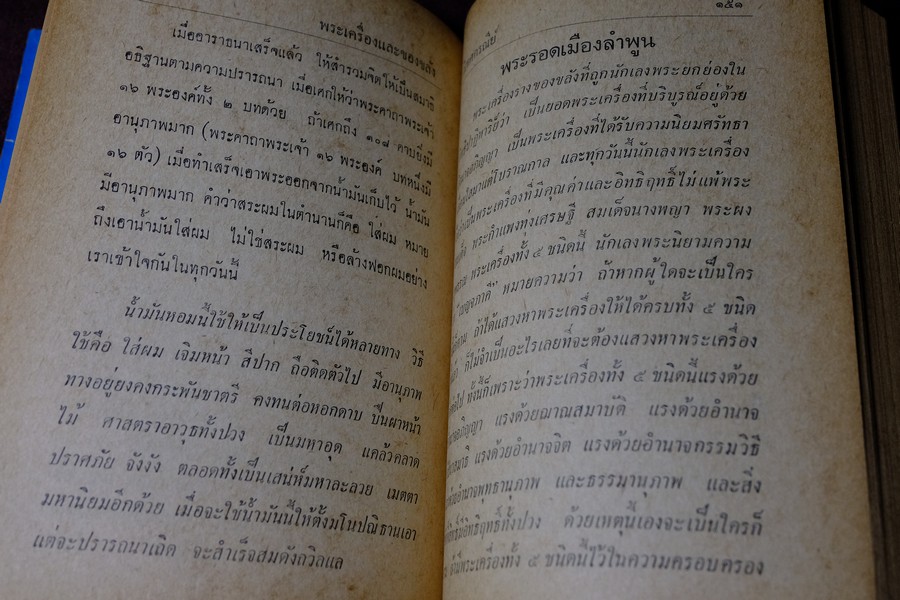 พระเครื่องและของขลัง
เมื่ออาราธนาเสร็จแล้ว ให้สำรวมจิตให้เป็นสมาธิ
อธิฐานตามความปรารถนา เมื่อเศกให้ว่าพระคาถาพระเจ้า
๑๖ พระองค์ทั้ง ๒ บทด้วย ถ้าเศกถึง ๑๐๘ คาบยิ่งมี
อานุภาพมาก (พระคาถาพระเจ้า ๑๖ พระองค์ บทหนึ่งมี
๑๖ ตัว) เมื่อทำเสร็จเอาพระออกจากน้ำมันเก็บไว้ น้ำมัน
มีอานุภาพมาก คำว่าสระผมในตำนานก็คือ ใส่ผม หมาย
ถึงเอาน้ำมันใส่ผม ไม่ใช่สระผม หรือล้างฟอกผมอย่าง
เราเข้าใจกันในทุกวันนี้
น้ำมันหอมนี้ใช้ให้เป็นประโยชน์ได้หลายทาง วิธี
ใช้คือ ใส่ผม เจิมหน้า สีปาก ถือติดตัวไป มีอานุภาพ
ทางอยู่ยงคงกระพันชาตรี คงทนต่อหอกดาบ ปืนผาหน้า
ไม้ ศาสตราอาวุธทั้งปวง เป็นมหาอุด แคล้วคลาด
ปราศภัย จังงัง ตลอดทั้งเป็นเสน่ห์มหาละลวย เมตตา
มหานิยมอีกด้วย เมื่อจะใช้น้ำมันนี้ให้ตั้งมโนปณิธานเอา
แต่จะปรารถนาเถิด จะสำเร็จสมดังถวิลแล
๑๕๑
พระรอดเมืองลำพูน
พระเครื่องรางของขลังที่ถูกนักเลงพระยกย่องใน
ว่า เป็นยอดพระเครื่องที่บริบูรณ์อยู่ด้วย
เป็นพระเครื่องที่ได้รับความนิยมศรัทธา
แต่โบราณกาล และทุกวันนี้นักเลงพระเครื่อง
เป็นพระเครื่องที่มีคุณค่าและอิทธิฤทธิ์ไม่แพ้พระ
พระกำแพงทุ่งเศรษฐี สมเด็จนางพญา พระผง
พระเครื่องทั้ง ๕ ชนิดนี้ นักเลงพระนิยามความ
"เบญจภาคี" หมายความว่า ถ้าหากผู้ใดจะเป็นใคร
ถ้าได้แสวงหาพระเครื่องให้ได้ครบทั้ง ๕ ชนิด
ก็ไม่จำเป็นอะไรเลยที่จะต้องแสวงหาพระเครื่อง
ทั้งนี้ก็เพราะว่าพระเครื่องทั้ง ๕ ชนิดนี้แรงด้วย
แรงด้วยฌาณสมาบัติ แรงด้วยอำนาจ
แรงด้วยอำนาจจิต แรงด้วยอำนาจกรรมวิธี
อำนาจพุทธานุภาพ และธรรมานุภาพ และสิ่ง
อิทธิฤทธิ์ทั้งปวง ด้วยเหตุนี้เองจะเป็นใครก็
พระเครื่องทั้ง ๕ ชนิดนี้ไว้ในความครอบครอง